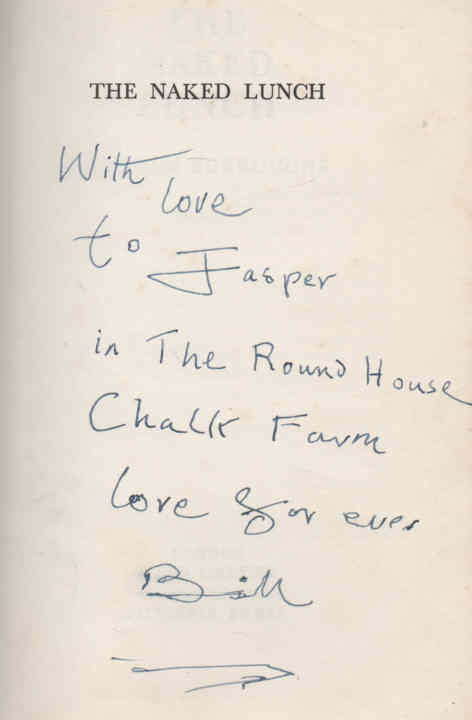 THE NAKED LUNCH
With
love
to Jasper
in The Round House
Chalk Farm
love for ever
Bill